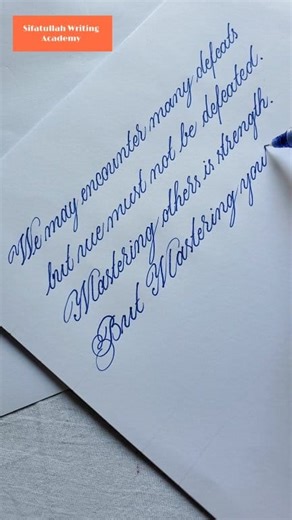 Sifatullah Writing
Academy
We may encounter many defeats
but we must not be defeated.
Mastering others is strength.
But Mastering you